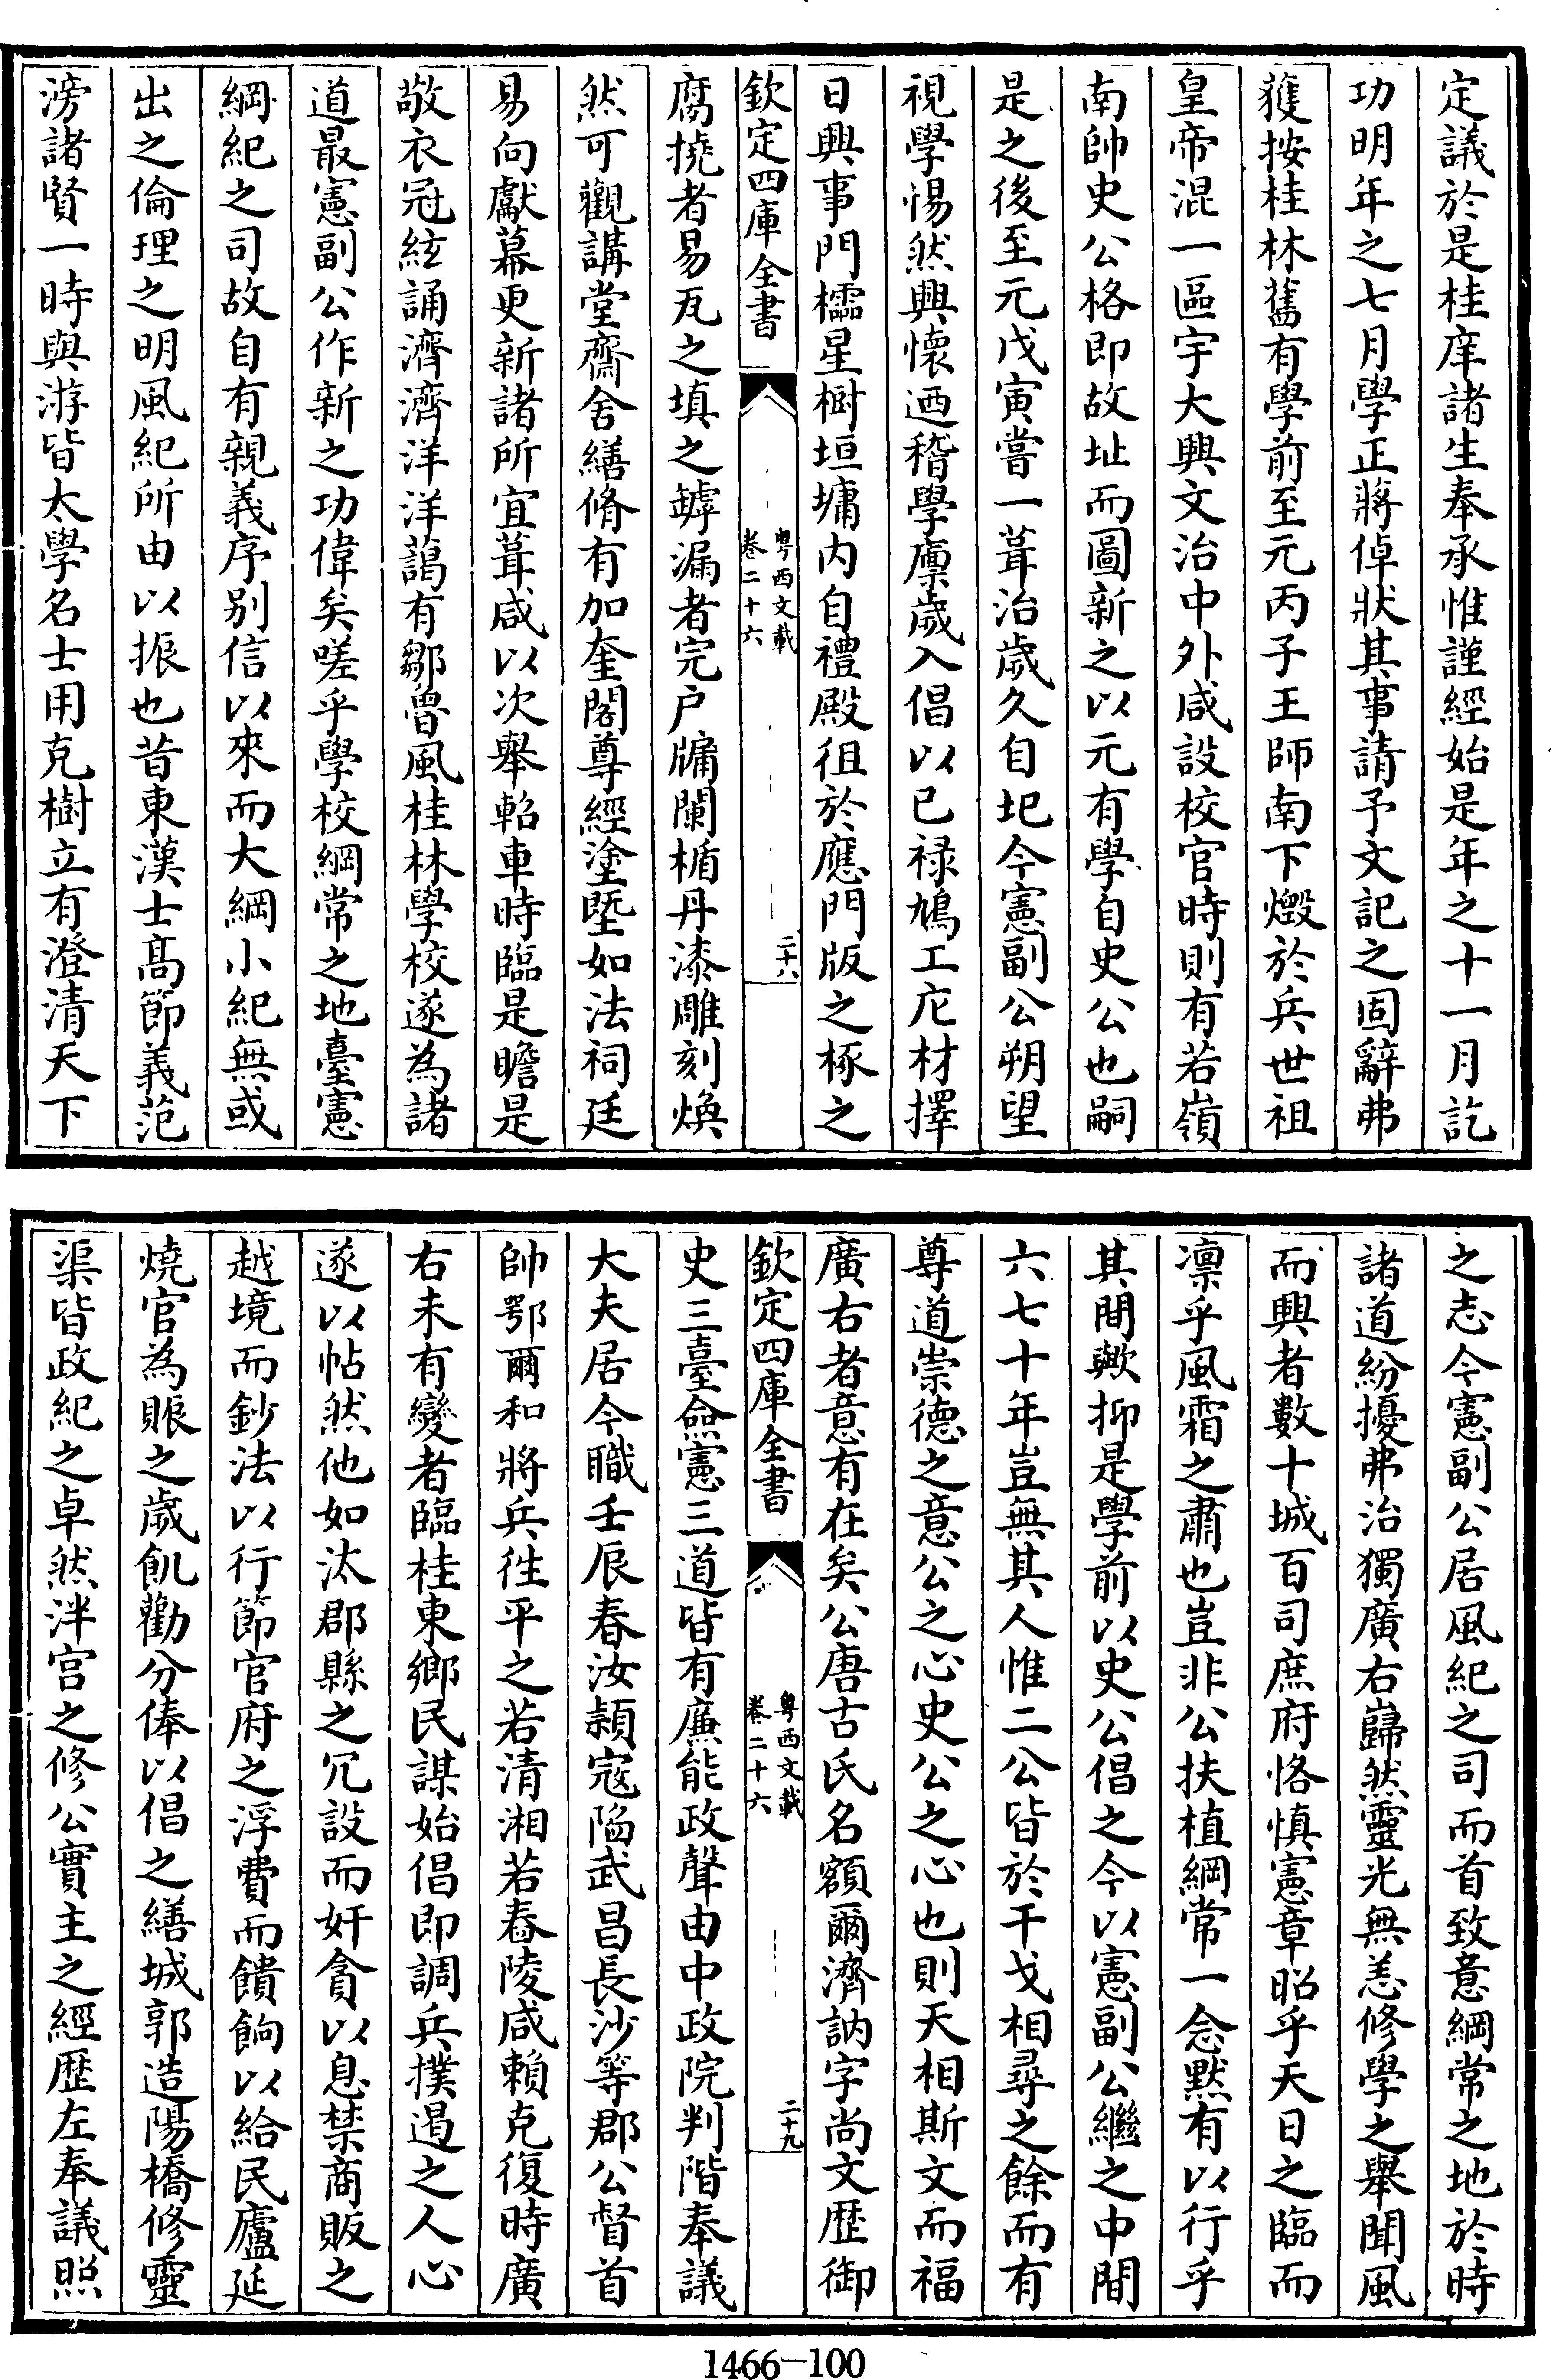 定議於是桂庠諸生奉承惟謹經始是年之十一月訖
功明年之七月學正蔣倬狀其事請予文記之固辭弗
獲按桂林舊有學前至元丙子王師南下燬於兵世祖
皇帝混一區宇大興文治中外咸設校官時則有若嶺
南帥史公格即故址而圖新之以元有學自史公也嗣
是之後至元戊寅嘗一葺治歲久自圮今憲副公朔望
視學惕然興懷迺稽學廪歲入倡以已禄鳩工庀材擇
日興事門櫺星樹垣墉内自禮殿徂於應門版之椓之
欽定四庫全書
粤西文載
卷二十六
二十八
腐撓者易瓦之填之罅漏者完户牖闌楯丹漆雕刻煥
然可觀講堂齋舍繕脩有加奎閣尊經塗塈如法祠廷
易向獻幕更新諸所宜葺咸以次舉軺車時臨是瞻是
敬衣冠絃誦濟濟洋洋藹有鄒魯風桂林學校遂為諸
道最憲副公作新之功偉矣嗟乎學校綱常之地臺憲
綱紀之司故自有親義序别信以來而大綱小紀無或
出之倫理之明風紀所由以振也昔東漢士髙節義范
滂諸賢一時與游皆太學名士用克樹立有澄清天下
之志今憲副公居風紀之司而首致意綱常之地於時
諸道紛擾弗治獨廣右巋然靈光無恙修學之舉聞風
而興者數十城百司庶府恪慎憲章昭乎天日之臨而
凛乎風霜之肅也豈非公扶植綱常一念黙有以行乎
其間歟抑是學前以史公倡之今以憲副公繼之中間
六七十年豈無其人惟二公皆於干戈相尋之餘而有
尊道崇德之意公之心史公之心也則天相斯文而福
廣右者意有在矣公唐古氏名額爾濟訥字尚文歴御
欽定四庫全書
粤西文載
卷二十六
二十九
史三臺僉憲三道皆有廉能政聲由中政院判階奉議
大夫居今職壬辰春汝潁寇陷武昌長沙等郡公督首
帥鄂爾和將兵徃平之若清湘若舂陵咸賴克復時廣
右未有變者臨桂東鄉民謀始倡即調兵撲遏之人心
遂以帖然他如汰郡縣之冗設而奸貪以息禁商販之
越境而鈔法以行節官府之浮費而饋餉以給民廬延
燒官為賑之歲飢勸分俸以倡之繕城郭造陽橋修靈
渠皆政紀之卓然泮宫之修公實主之經歴左奉議照
1466—100